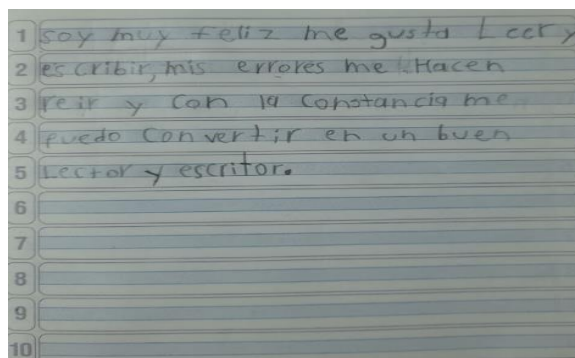 1 soy muy feliz me gusta Leer y
2 escribir, mis errores me Hacen
3 reir y con la constancia me
4 puedo convertir en un buen
5 Lector y escritor.
6
7
8
9
10